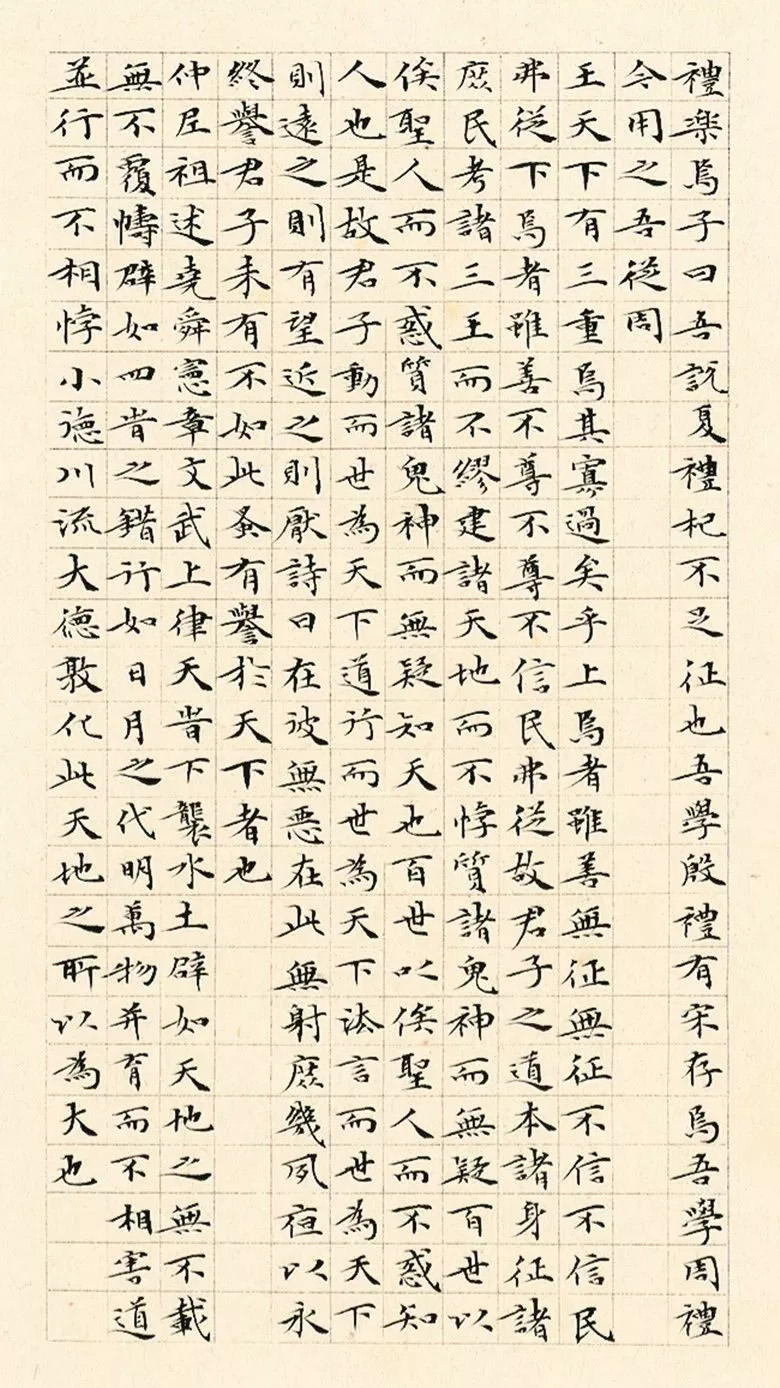 禮樂焉子曰吾説夏禮杞不足征也吾學殷禮有宋存焉吾學周禮
今用之吾從周
王天下有三重焉其寡過矣乎上焉者雖善無征無征不信不信民
弗從下焉者雖善不尊不尊不信民弗從故君子之道本諸身征諸
庶民考諸三王而不繆建諸天地而不悖質諸鬼神而無疑百世以
俟聖人而不惑質諸鬼神而無疑知天也百世以俟聖人而不惑知
人也是故君子動而世為天下道行而世為天下法言而世為天下
則遠之則有望近之則厭詩曰在彼無惡在此無射庶幾夙夜以永
終譽君子未有不如此蚤有譽於天下者也
仲尼祖述堯舜憲章文武上律天旹下襲水土辟如天地之無不載
無不覆幬辟如四旹之錯行如日月之代明萬物并育而不相害道
並行而不相悖小德川流大德敦化此天地之所以為大也